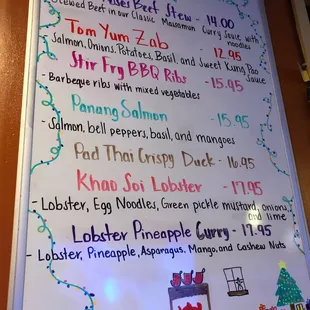 Beef Stew - 14.00
Stewed Beef in our Classic Massaman Curry Sauce with
noodles
Tom Yum Zab - 12.95
Salmon, Onions, Potatoes, Basil, and Sweet Kung Pao
Sauce
Stir Fry BBQ Ribs - 15.95
- Barbeque ribs with mixed vegetables
Panang Salmon - 15.95
- Salmon, bell peppers, basil, and mangoes
Pad Thai Crispy Duck - 16.95
Khao Soi Lobster - 17.95
- Lobster, Egg Noodles, Green pickle mustard, onions,
and lime
Lobster Pineapple Curry - 17.95
- Lobster, Pineapple, Asparagus, Mango, and Cashew Nuts